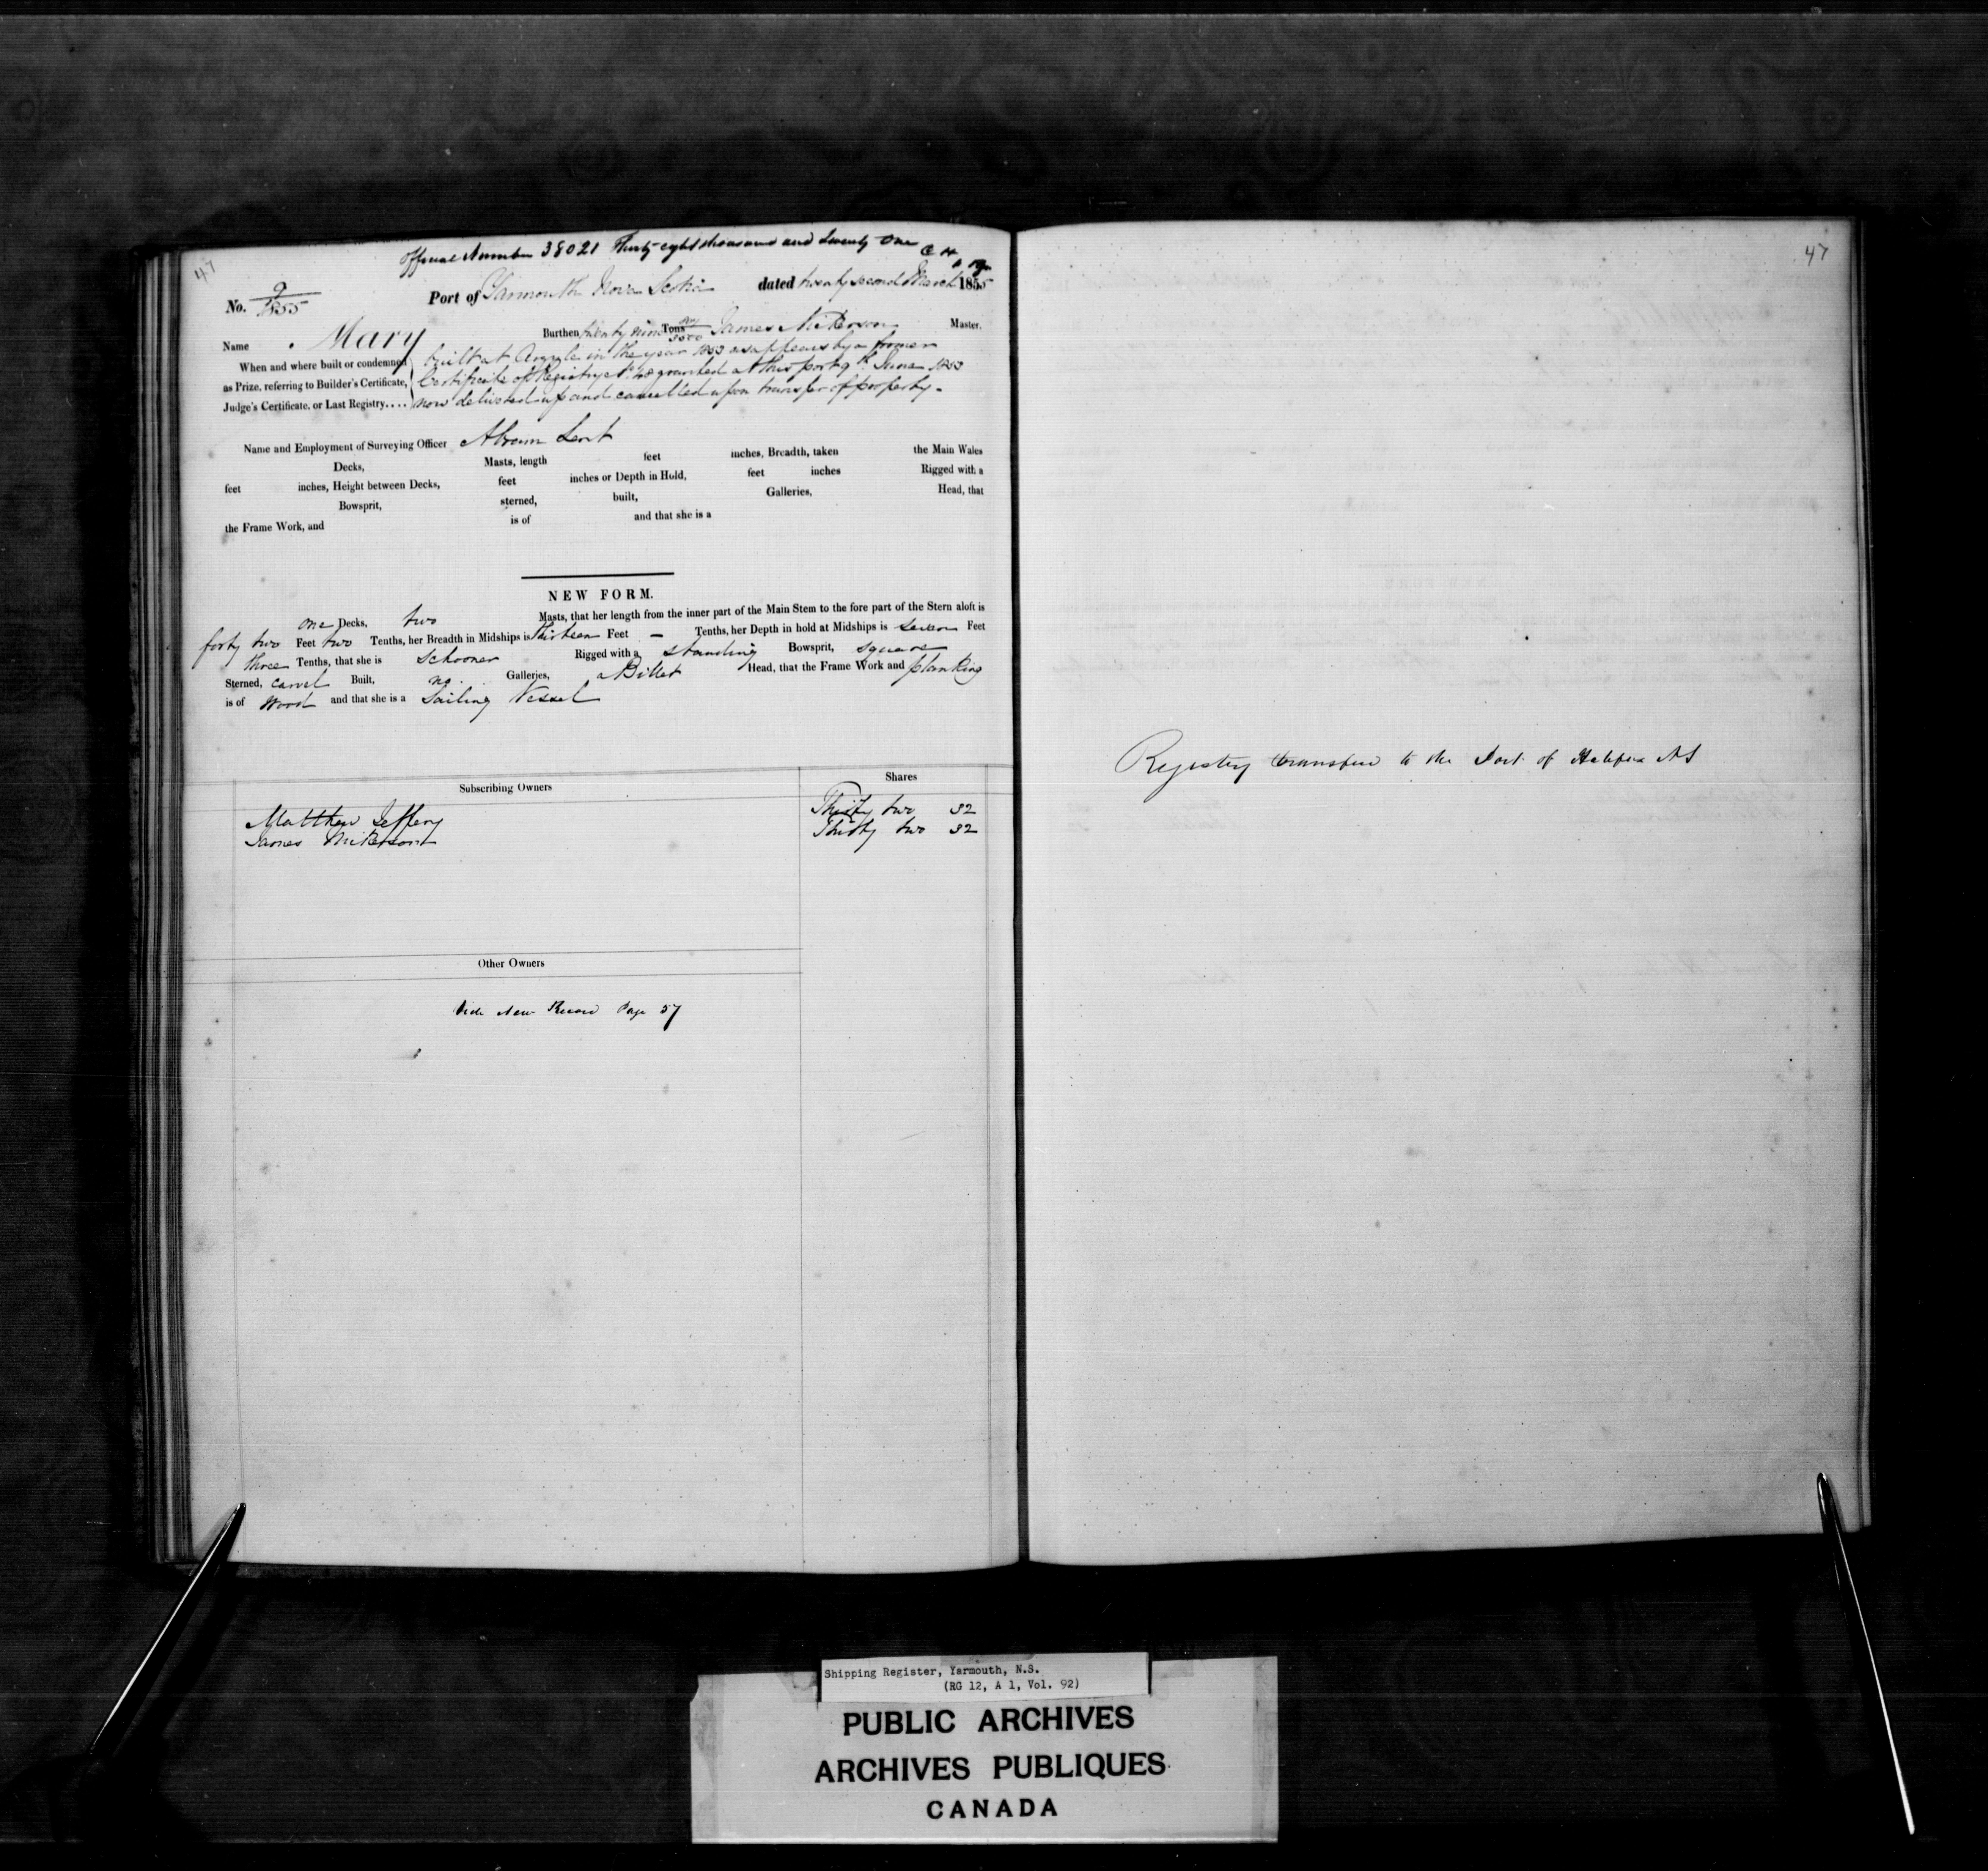 47
Official Number 38021 Thirty eight thousand and twenty one
No. 9/1855 Port of Yarmouth Nova Scotia dated twenty second March 1855
Name Mary Burthen twenty nine Tons James Nickerson Master.
When and where built or condemned built at Argyle in the year 1853 as appears by a former
as Prize, referring to Builder's Certificate, Certificate of Registry granted at this port 9th June 1853
Judge's Certificate, or Last Registry.... now delivered up and cancelled upon transfer of property.
Name and Employment of Surveying Officer Abram Lent
Decks, Masts, length feet inches, Breadth, taken the Main Wales
feet inches, Height between Decks, feet inches or Depth in Hold, feet inches Rigged with a
Bowsprit, sterned, built, Galleries, Head, that
the Frame Work, and is of and that she is a
NEW FORM.
one Decks, two Masts, that her length from the inner part of the Main Stem to the fore part of the Stern aloft is
forty two Feet two Tenths, her Breadth in Midships is thirteen Feet — Tenths, her Depth in hold at Midships is seven Feet
three Tenths, that she is Schooner Rigged with a standing Bowsprit, square
Sterned, carvel Built, no Galleries, a Billet Head, that the Frame Work and planking
is of Wood and that she is a Sailing Vessel
Subscribing Owners Shares
Matthew Jeffery Thirty two 32
James Nickerson Thirty two 32
Other Owners
Vide New Record Page 57
47
Registry transfered to the Port of Halifax NS
Shipping Register, Yarmouth, N.S.
(RG 12, A 1, Vol. 92)
PUBLIC ARCHIVES
ARCHIVES PUBLIQUES
CANADA